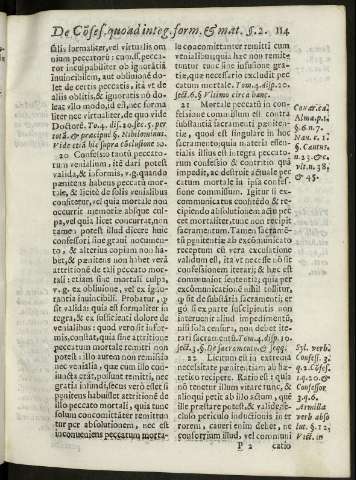 De Cõfes. quoad integ. form. & mat. §. 2. 114
silis formaliter, vel virtualis om
nium peccatorũ: cum. ss. pecca-
tor inculpabiliter ob ignorãtiã
invincibilem, aut obliuionẽ do-
let de certis peccatis, ita vt de
aliis oblitis, & ignoratis nõ do-
leat vllo modo, id est, nec forma
liter nec virtualiter, de quo vide
Doctorẽ. To. 4. disp. 20. sec. 5. per
totã. & præcipuè §. Nihilominus.
Vide etiã hic supra cõclusione 10.
20 Confessio tantũ peccato-
rum venialium, itẽ dari potest
valida, & informis, v. g. quando
pœnitens habens peccata morta-
le, & licitè de solis venialibus
confitetur, vel quia mortale non
occurrit memoriæ absque cul-
pa, vel quia licet concurrat, non
tamen potest illud dicere huic
confessori sine graui nocumen-
to, & alterius copiam non ha-
bet, & pœnitens non habet verã
attritionẽ de tali peccato mor-
tali: etiam sine mortali culpa,
v. g. ex obliuione, vel ex igno-
rantia inuincibili. Probatur,
sit valida: quia est formaliter in
tegra, & ex sufficienti dolore de
venialibus: quod vero sit infor-
mis, constat, quia sine attritione
peccatum mortale remitti non
potest: illo autem non remissio
nec venialia, quæ cum illo con-
iuncta erãt, possunt remitti, nec
gratia infundi, secus verò esset si
pœnitens habuisset attritionẽ de
illo peccato mortali, quia tunc
solum concomitanter remittitur
tur per absolutionem, nec est
inconueniens peccatum morta-
le concomitanter remitti cum
venialibus, quia hæc non remit-
tuntur tunc sine infusione gra-
tiæ, quæ necessario expellit pec-
catum mortale. Tom. 4. disp. 20.
sect. 6. §. Viverso circa hanc.
21 Mortale peccatũ in con-
fessione commissum est contra
substantiam sacramenti pœniten-
tiæ, quod est singulare in hoc
sacramento; quia materia essen-
tialis illius est integra peccato-
rum confessio & contritio quã
impedit, ac destruit actuale pec
catum mortale in ipsa confes-
sione commissum. Igitur si ex-
communicatus confitẽdo & re-
cipiendo absolutionem: actu pec
cet mortaliter, tunc non recipit
sacramentum. Tamen sacramẽ-
tũ pœnitentiæ ab excõmunicato
receptum cũ vera excusatione
validum est, ita vt necesse nõ sit
confessionem iterari; & hæc est
communior sententia; quia per
excõmunicationẽ nihil tollitur,
ꝗ sit de substãtia sacramenti; er
go si ex parte suscipientis non
interuenit aliud impedimentũ,
nisi sola censura, non debet ite-
rari sacramentũ. Tom. 4. disp. 10.
sect. 3. §. De sacramento & seqq.
22 Licitum est in extrema
necessitate pœnitentiam ab hæ-
retico recipere. Ratio est: quia
nõ tenetur illum vitare tunc, &
alioqui petit ab illo actum, quẽ
ille præstare potest, & validè, se-
cluso periculo inductionis in er
rorem, caueri enim debet, ne
consortium illud, vel communi
P 2 catio
Couar. ca.
Alma p. 1.
§. 6. n. 7.
Nau. c. 1.
§. Cautus.
n. 23. & c.
vit. n. 38,
& 45.
Syl. verb.
Confess. 3.
q. 2. Cõfes.
1. q. 20. &
Confessor
3. q. 6.
Armilla
verb. abso
lut. §. 12,
Vict. in